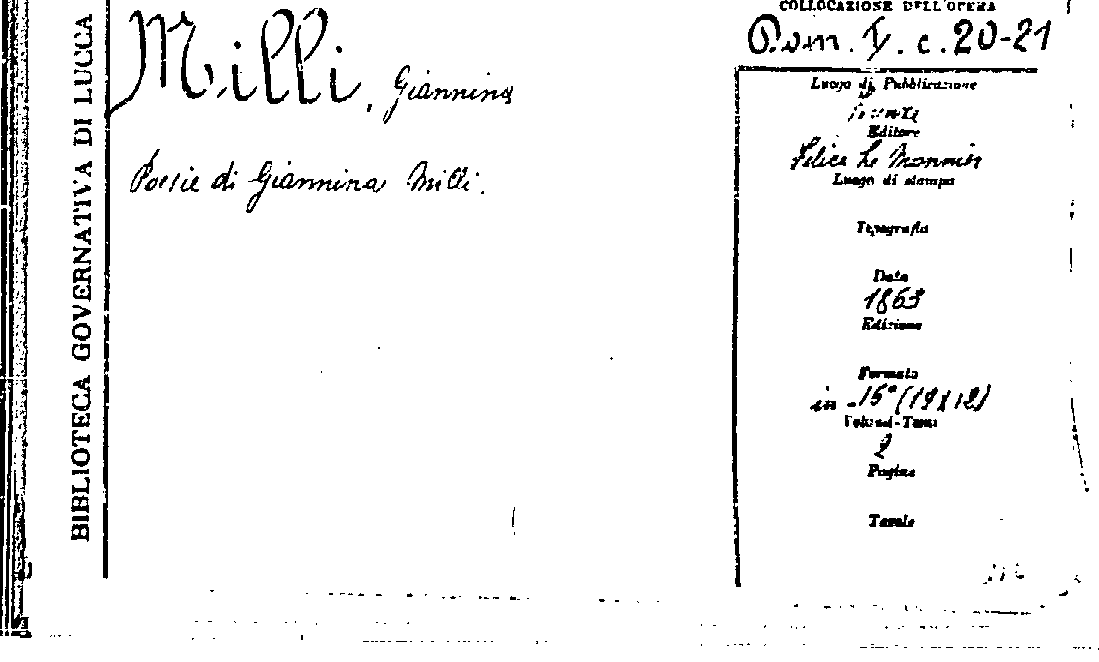 BIBLIOTECA GOVERNATIVA DI LUCCA
Milli, Giannina
Poesie di Giannina Milli.
COLLOCAZIONE DELL'OPERA
Pom. I. c. 20-21
Luogo di Pubblicazione
Editore
Felice Le Monnier
Luogo di stampa
Tipografia
Data
1863
Edizione
Formato
in -16° (19x12)
Volumi-Tomi
2
Pagine
Tavole